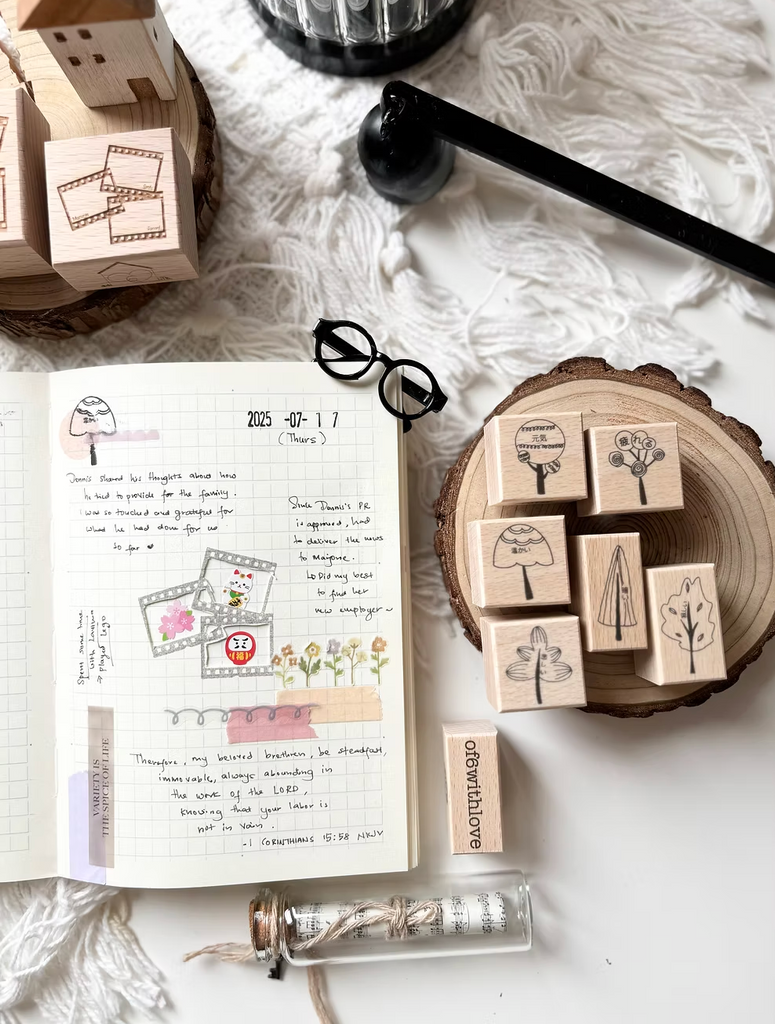 温かい
2025 -07- 1 7
(Thurs)
Dennis shared his thoughts about how
he tried to provide for the family.
I was so touched and grateful for
what he had done for us
so far
Since Dennis's PR
is approved, had
to deliver the news
to Marjorie.
Did my best
to find her
new employer~
Spent some time
with
→ played lego
福
VARIETY IS
THE SPICE OF LIFE
Therefore, my beloved brethren, be steadfast,
immovable, always abounding in
the work of the LORD,
knowing that your labor is
not in vain.
-1 CORINTHIANS 15:58 NKJV
元気
疲れる
温かい
of6withlove